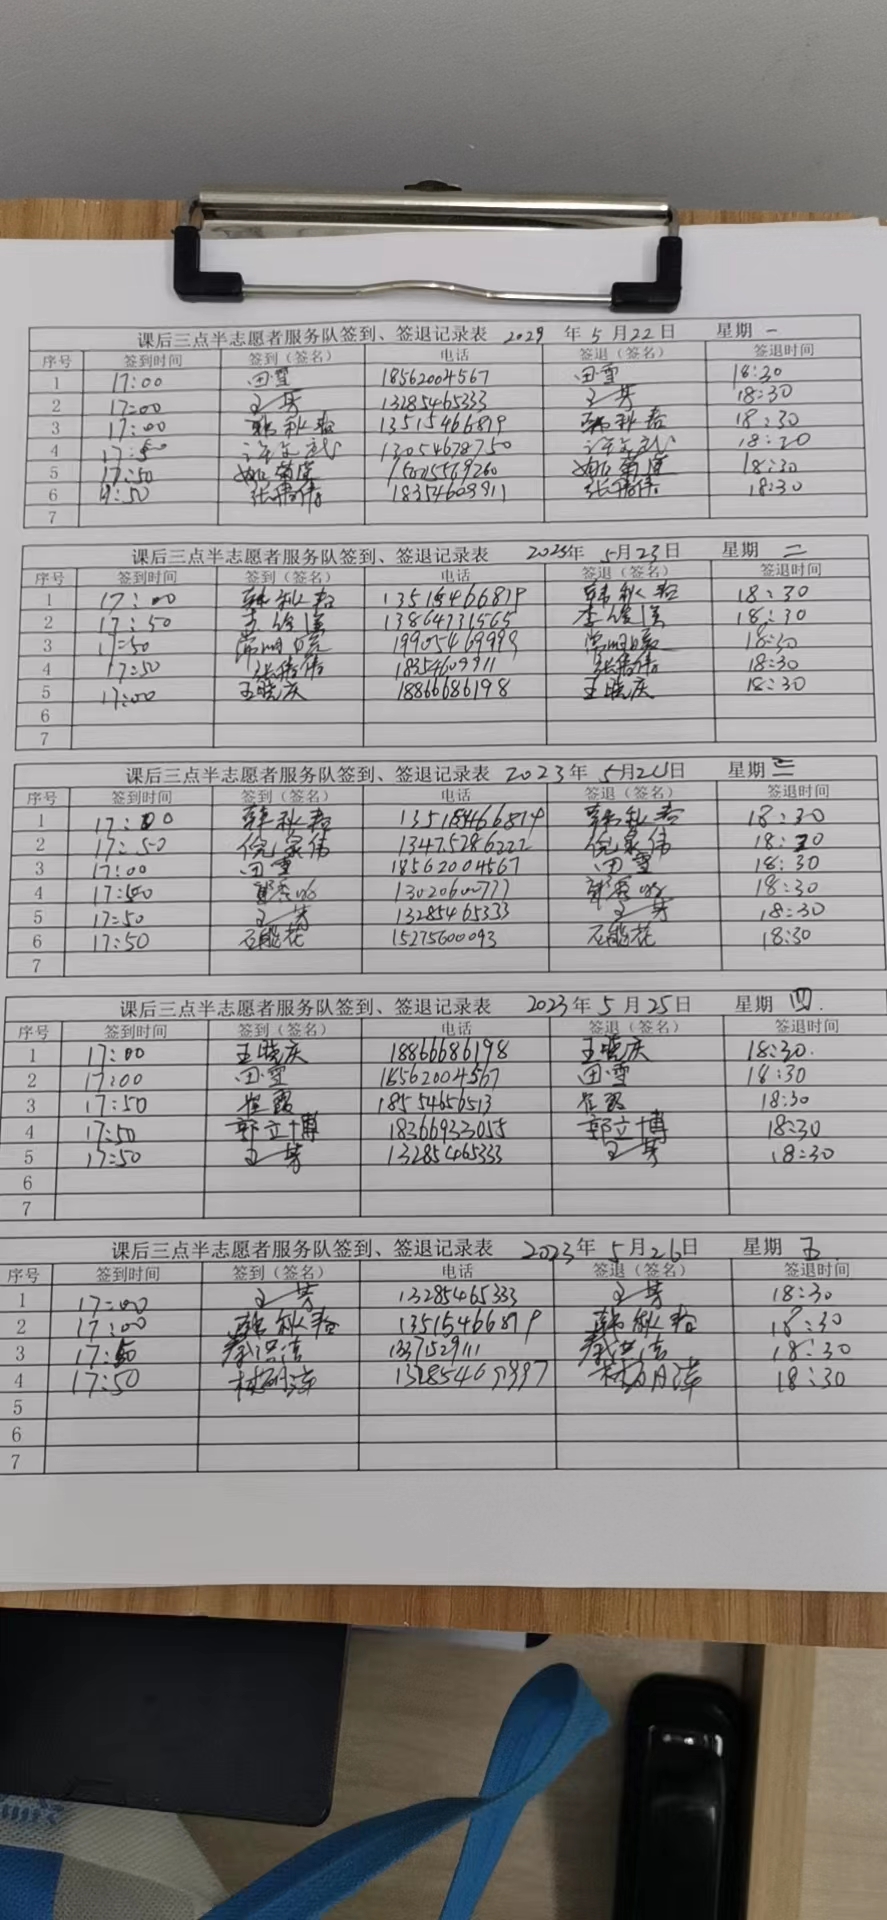 课后三点半志愿者服务队签到、签退记录表 2023 年 5 月 22 日 星期 一
序号 签到时间 签到（签名） 电话 签退（签名） 签退时间
1 17:00 田雪 18562004567 田雪 18:30
2 17:00 王芳 13285465333 王芳 18:30
3 17:00 韩秋春 13515466819 韩秋春 18:30
4 13054678750
5 17:50 15025579260 18:30
6 18354609911 18:30
7
课后三点半志愿者服务队签到、签退记录表 2023年 5月23日 星期 二
序号 签到时间 签到（签名） 电话 签退（签名） 签退时间
1 17:00 韩秋春 13515466819 韩秋春 18:30
2 17:50 13864731565 18:30
3 17:50 19905469999 18:30
4 17:50 18354609911 18:30
5 17:00 王晓庆 18866686198 王晓庆 18:30
6
7
课后三点半志愿者服务队签到、签退记录表 2023年 5月24日 星期 三
序号 签到时间 签到（签名） 电话 签退（签名） 签退时间
1 17:00 韩秋春 韩秋春 18:30
2 17:50 倪家伟 13475286222 倪家伟 18:30
3 17:00 田雪 18562004567 田雪 18:30
4 17:50 18:30
5 17:50 王芳 13285465333 王芳 18:30
6 17:50 石能花 15275600093 石能花 18:30
7
课后三点半志愿者服务队签到、签退记录表 2023年 5月25日 星期 四
序号 签到时间 签到（签名） 电话 签退（签名） 签退时间
1 17:00 王晓庆 18866686198 王晓庆 18:30
2 17:00 田雪 18562004567 田雪 18:30
3 17:50 崔霞 18554656513 崔霞 18:30
4 17:50 郭立博 18366933055 郭立博 18:30
5 17:50 王芳 13285465333 王芳 18:30
6
7
课后三点半志愿者服务队签到、签退记录表 2023年 5月26日 星期 五
序号 签到时间 签到（签名） 电话 签退（签名） 签退时间
1 17:00 王芳 13285465333 王芳 18:30
2 17:00 韩秋春 13515466819 韩秋春 18:30
3 17:50 18:30
4 17:50 18:30
5
6
7